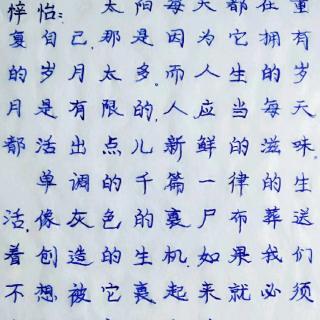 梓怡:太阳每天都在重
复自己,那是因为它拥有
的岁月太多。而人生的岁
月是有限的,人应当每天
都活出点儿新鲜的滋味。
单调的千篇一律的生
活,像灰色的裹尸布葬送
着创造的生机,如果我们
不想被它裹起来就必须